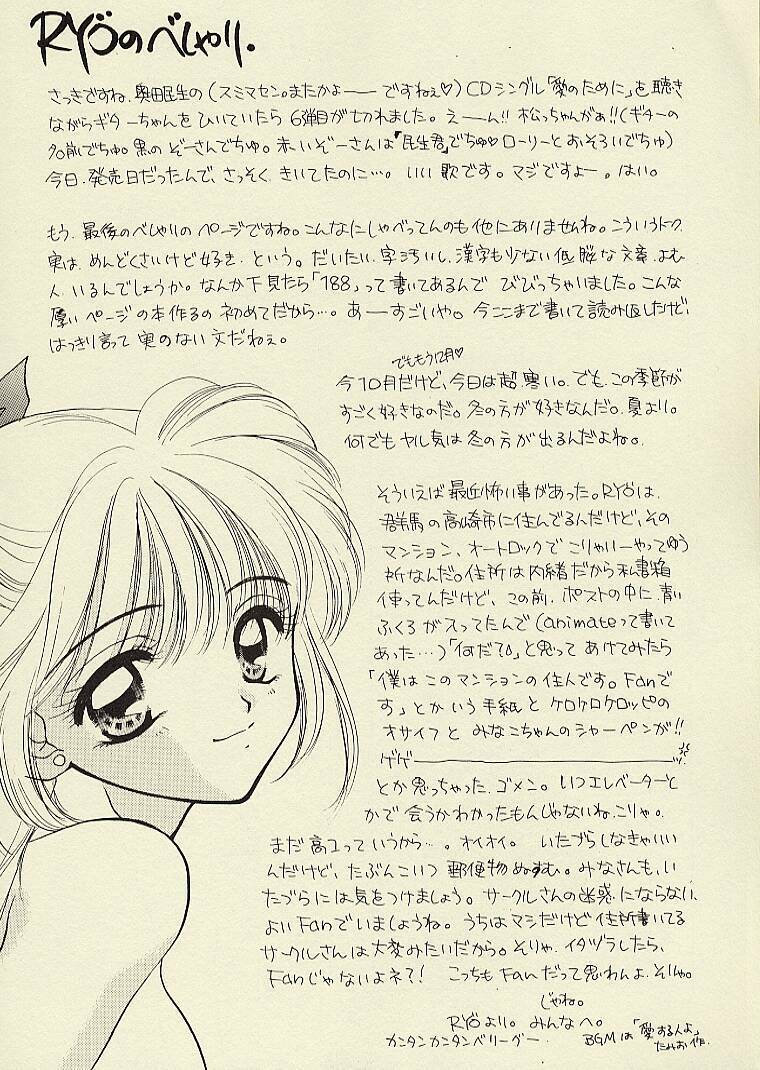 RYÖのべしゃり.
さっきですね、奥田民生の(スミマセン。またかょーー ですねぇ♡) CDシングル「愛のために」を聴き
ながらギターちゃんをひいていたら 6弾目が切れました。えーーん!! 松っちゃんがぁ!!(ギターの
名前でちゅ。黒の ぞーさんでちゅ。赤いぞーさんは「民生君」でちゅ♡ ローリーとおそろいでちゅ)
今日、発売日だったんで、さっそく きいてたのに…。 いい 歌です。マジですよー。はい。
もう、最後のべしゃりの ページですね。こんなにしゃべってんのも他にありませんね。こういうトーク
実は、めんどくさいけど好き、という。だいたい、字汚いし、漢字も少ない低脳な文章、よむ
人 いるんでしょうか。なんか下見たら「188」って書いてあるんで びびっちゃいました。こんな
厚いページの本作るの 初めてだから…。あーーすごいや。今ここまで書いて読み返したけど、
はっきり言って 実のない 文だねぇ。
でももう12月♡
今10月だけど、今日は超 寒い。でも、この季節が
すごく好きなのだ。冬の方が好きなんだ。夏より。
何でもヤル気は冬の方が出るんだよね。
そういえば 最近怖い事があった。RYÖは、
群馬の高崎市に住んでるんだけど、その
マンション、オートロックで こりゃいーやってゆう
所なんだ。住所は内緒だから私書箱
使ってんだけど、この前、ポストの中に 青い
ふくろが入ってたんで(animateって書いて
あった…)「何だ?」と思って あけてみたら
「僕は このマンションの住人です。Fanで
す」とかいう手紙と ケロケロケロッピの
オサイフと みなこちゃんのシャーペンが!!
ゲゲーーー
とか思っちゃった、ゴメン。いつエレベーターと
かで 会うかわかったもんじゃないね、こりゃ。
まだ 高1っていうから…。オイオイ。 いたづらしなきゃいい
んだけど、たぶんこいつ 郵便物ぬすむ。みなさんも、い
たづらには気をつけましょう。サークルさんの迷惑にならない、
よいFanでいましょうね。うちはマシだけど 住所書いてる
サークルさんは 大変みたいだから。そりゃ、イタヅラしたら、
Fanじゃないよネ?! こっちもFanだって思わんよ、そりゃ。
じゃね。
RYÖより。みんなへ。
カンタンカンタンベリーグー. BGMは「愛する人よ」
たみお作.